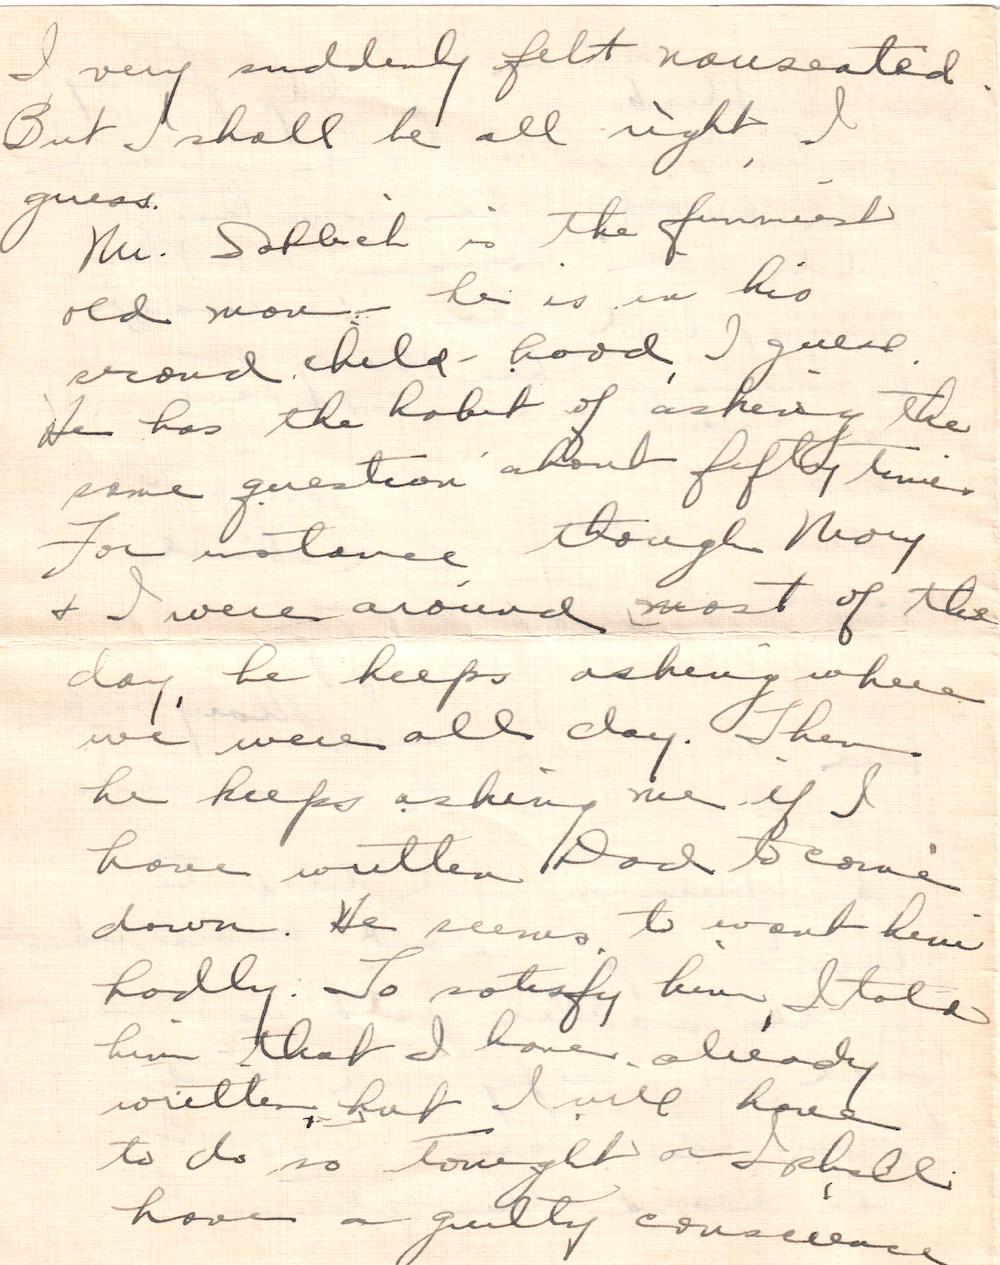 I very suddenly felt nauseated.
But I shall be all right, I
guess.
Mr. is the funniest
old man - he is in his
second child-hood, I guess.
He has the habit of asking the
same question about fifty times.
For instance though Mary
& I were around most of the
day, he keeps asking where
we were all day. Then
he keeps asking me if I
have written Dad to come
down. He seems to want him
badly. To satisfy him, I told
him that I have already
written, but I will have
to do so tonight or I shall
have a guilty conscience